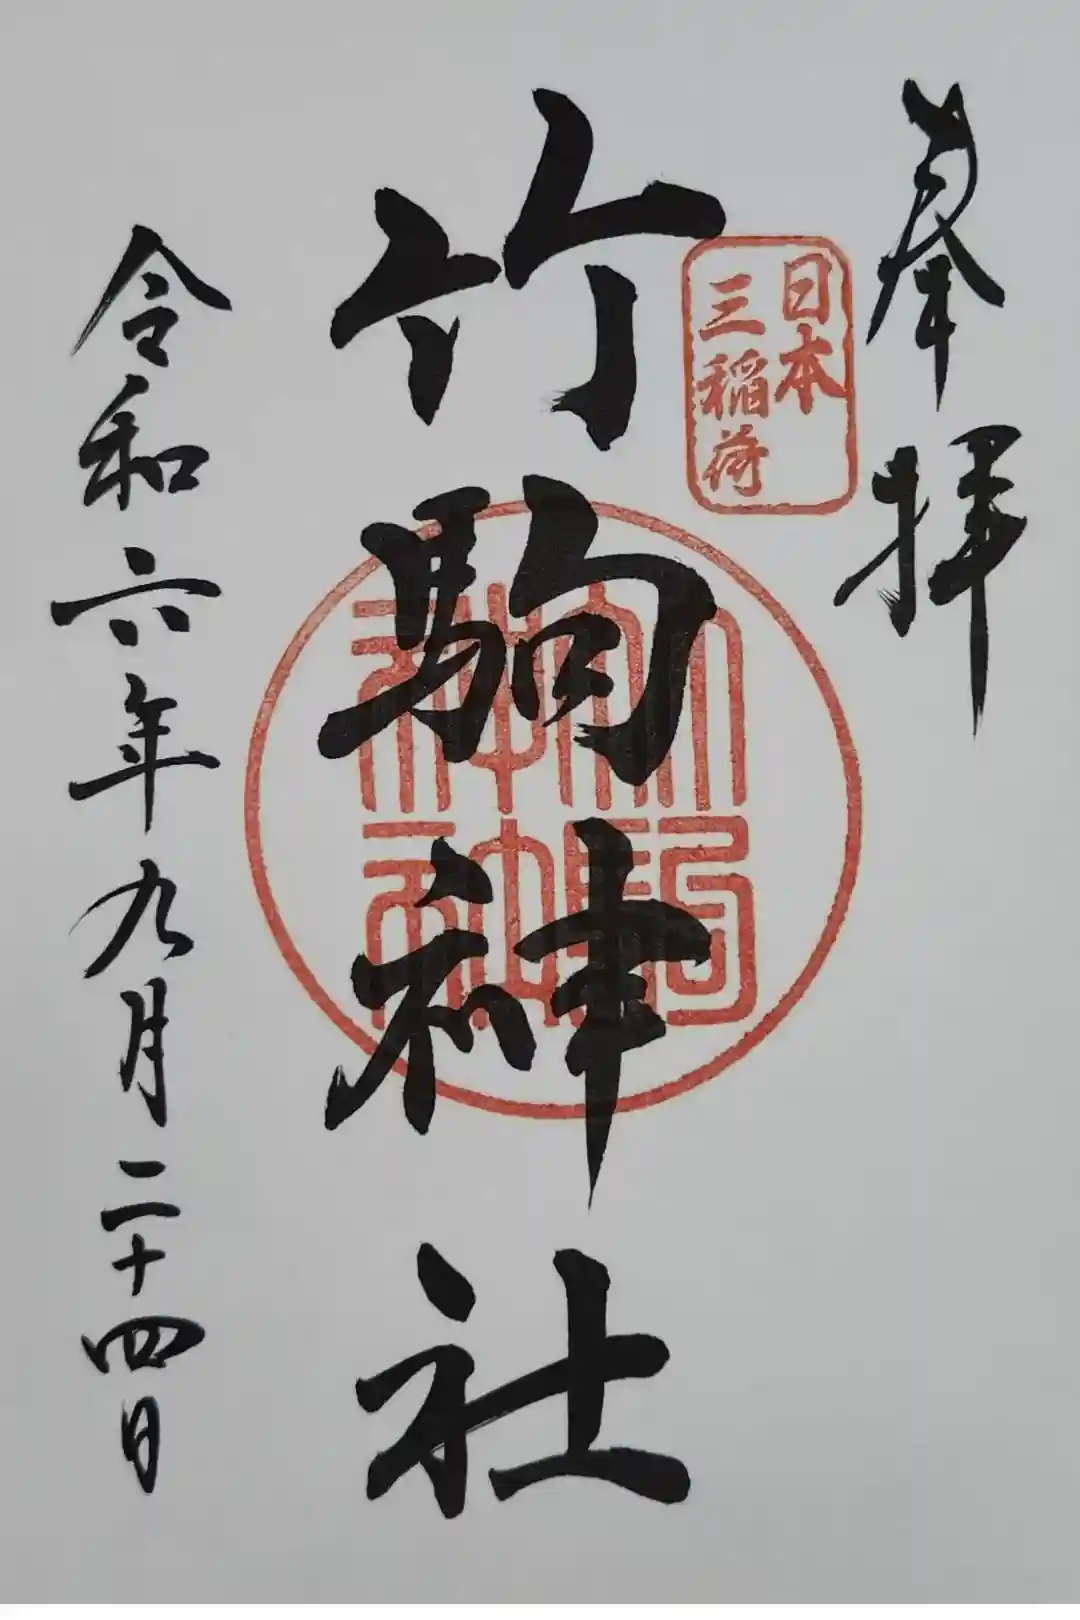 奉拝
日本
三稲荷
竹駒神社
竹駒神社
令和六年九月二十四日